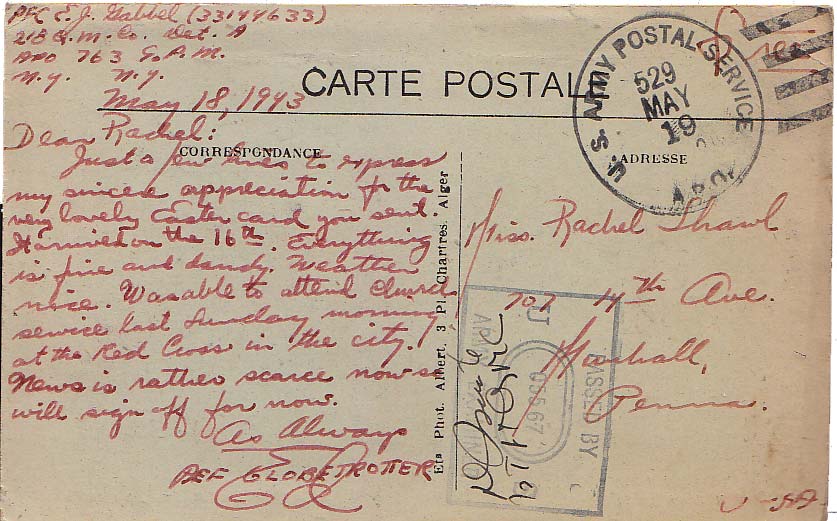 PFC E. J. Gabbel (33144633)
218 Q. M. Co. Det. A
APO 763 % P. M.
N.Y. N.Y.
May 18, 1943
CARTE POSTALE
Free
U.S. ARMY POSTAL SERVICE
529
MAY
19
A.P.O.
CORRESPONDANCE
ADRESSE
Dear Rachel:
Just a few lines to express
my sincere appreciation for the
very lovely Easter card you sent.
It arrived on the 16th. Everything
is fine and dandy. Weather
nice. Was able to attend church
service last Sunday morning
at the Red Cross in the city.
News is rather scarce now so
will sign off for now.
As Always
PEF GLOBETROTTER
Ets Phot. Albert, 3 Pl. Chartres. Alger
Miss. Rachel Shawl
707 4th Ave.
Penna.
U-SA
PASSED BY
ARMY EXAMINER